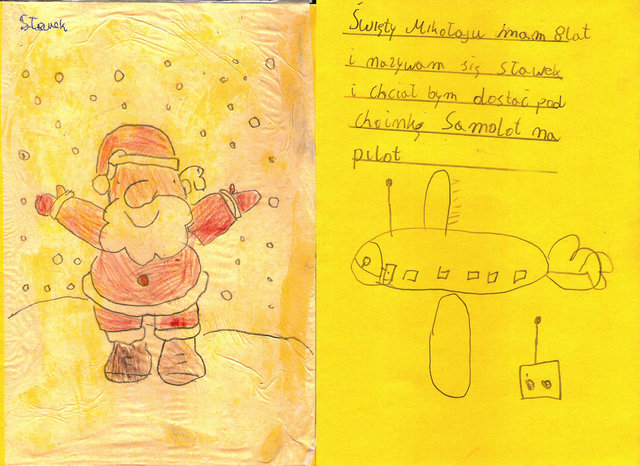 Sławek
Święty Mikołaju mam 8lat
i nazywam się Sławek
i chciał bym dostać pod
choinkę Samolot na
pilot